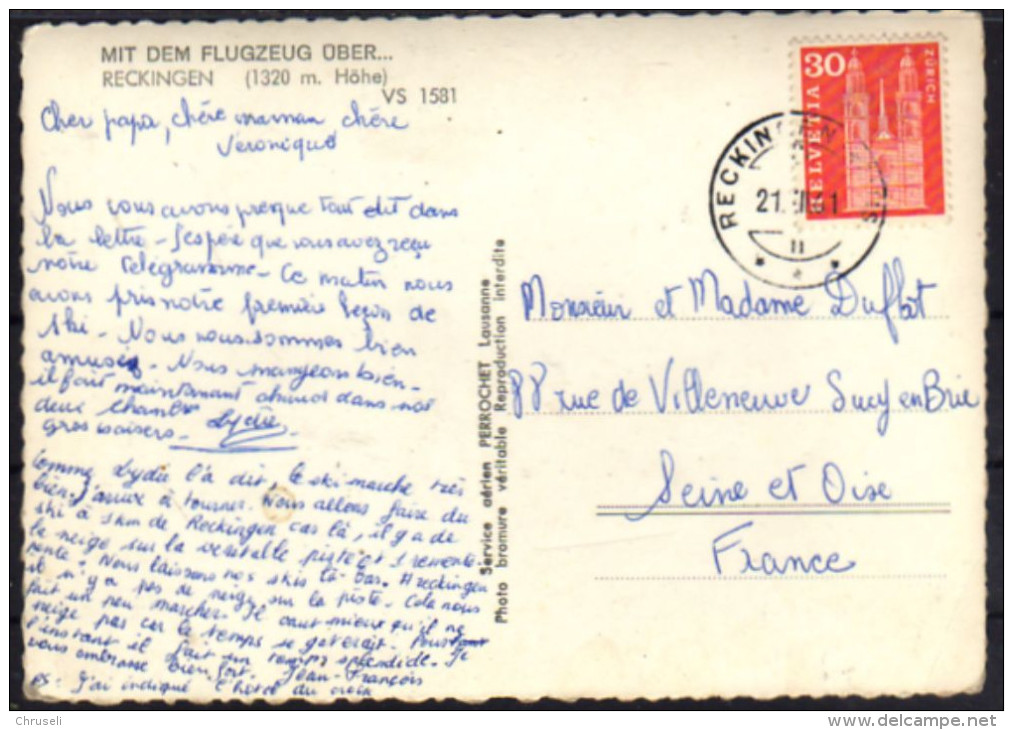 MIT DEM FLUGZEUG ÜBER...
RECKINGEN (1320 m. Höhe)
VS 1581
Cher papa, chère maman chère
Véronique
Nous vous avons presque tout dit dans
la lettre - J'espère que vous avez reçu
notre télégramme - Ce matin nous
avons pris notre première leçon de
Ski - Nous nous sommes bien
amusés - Nous mangeons bien -
il fait maintenant chaud dans nos
deux chambres
gros baisers - Lydie
Comme Lydie l'a dit, le ski marche très
bien j'arrive à tourner. Nous allons faire du
ski à 5km de Reckingen car là, il y a de
la neige sur la véritable piste et 1 remonte-
pente. Nous laissons nos skis là-bas. A reckingen
il n'y a pas de neige sur la piste. Cela nous
fait un peu marcher. Il vaut mieux qu'il ne
neige pas car le temps se gâterait. Pour
l'instant il fait un temps splendide. Je
vous embrasse bien fort. Jean-François
PS: J'ai indiqué l'hotel du croix
Service aérien PERROCHET Lausanne
Photo bromure véritable Reproduction interdite
30
HELVETIA
ZÜRICH
RECKINGEN
21.
61
Monsieur et Madame Duflot
88 rue de Villeneuve Sucy en Brie
Seine et Oise
France
Chruseli
www.delcampe.net